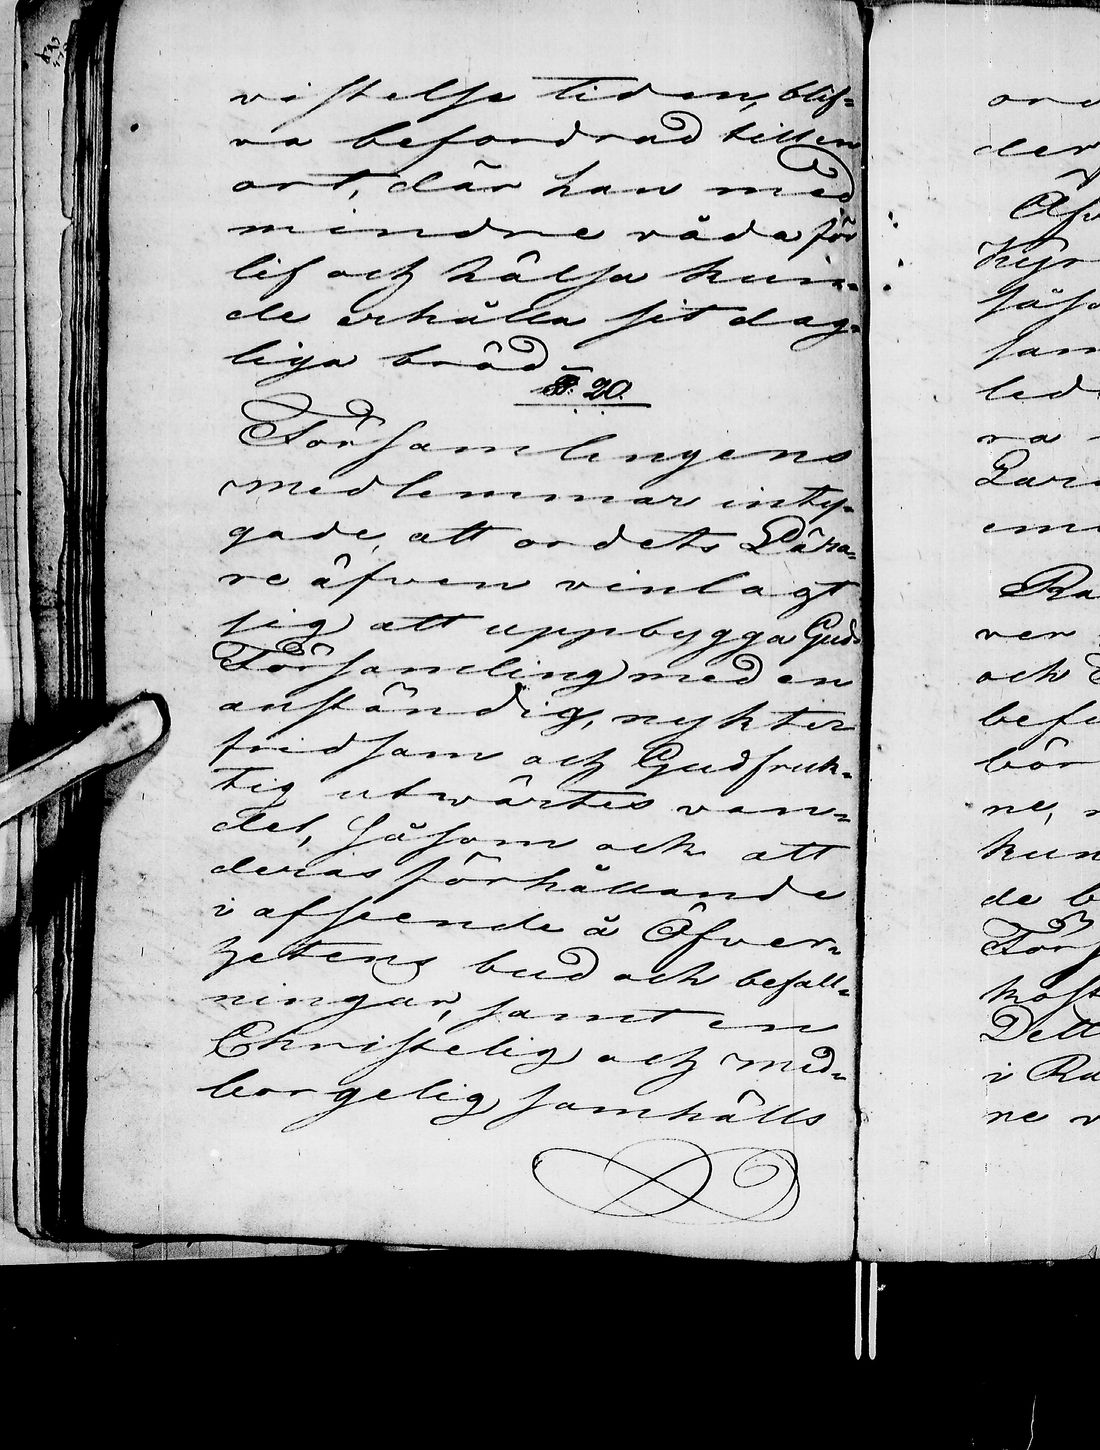 vistelse tiden, blif-
va befordrad till en
ort, där han med
mindre våda för
lif och hälsa kun-
de erhålla sit dag-
liga bröd.
§. 20.
Församlingens
medlemmar inty-
gade, att ordets Lära-
re äfven vinlagt
sig att uppbygga Guds
Församling med en
anständig, nykter
fridsam och Gudfruk-
tig utwärtes van-
del, såsom ock att
deras förhållande
i afseende å Öfver-
hetens bud och befall-
ningar, samt en
Christelig och med-
borgelig samhälls
ord
der
Äfv
Kyr
såso
sam
led
ra
Lara
em
Ra
ver
och
befu
bör
ne,
kun
de b
Förs
kost
Dett
i Ra
ne v